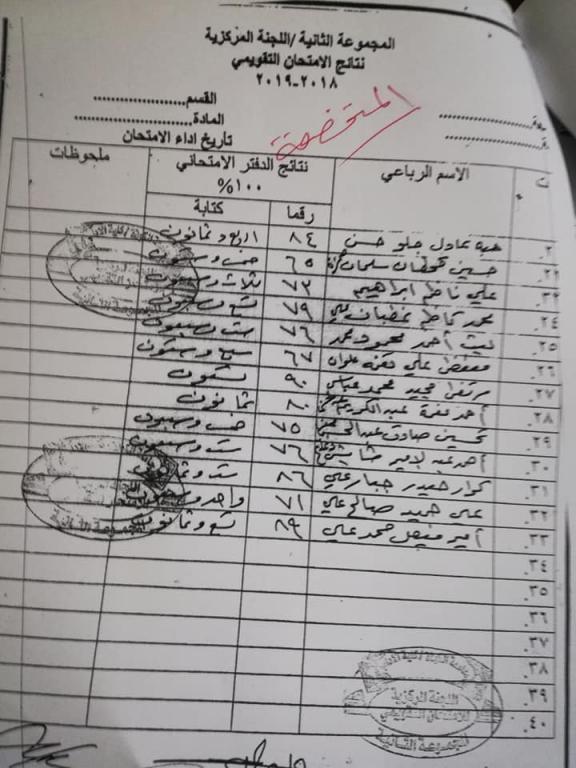 المجموعة الثانية /اللجنة المركزية
نتائج الامتحان التقويمي
٢٠١٨-٢٠١٩
القسم......................
المادة......................
تأريخ اداء الامتحان
ت الاسم الرباعي نتائج الدفتر الامتحاني ١٠٠% ملحوظات
رقما كتابة
هبة عادل جلو حسن ٨٤ اربع وثمانون
٢٢. حسين قحطان سلمان ٦٥ خمس وستون
٢٣. علي ناظم ابراهيم ٧٣ ثلاث وسبعون
٢٤. محمد كاظم غضبان ٧٩ تسع وسبعون
٢٥. ليث احمد محمود محمد ٧٦ ست وسبعون
٢٦. علي علوان ٦٧ سبع وستون
٢٧. مرتضى مجيد محمد عباس ٩٠ تسعون
٢٨. أحمد نعمة عبد الكريم ٨٠ ثمانون
٢٩. تحسين صادق ٧٥ خمس وسبعون
٣٠. أحمد عبد الامير ٧٦ ست وسبعون
٣١. كرار حيدر جبار علي ٨٦ ست وثمانون
٣٢. علي حميد صالح علي ٧١ واحد وسبعون
٣٣. أمير فيصل حمد علي ٨٩ تسع وثمانون
٣٤.
٣٥.
٣٦.
٣٧.
٣٨.
٣٩.
٤٠.
اللجنة المركزية
للامتحان التقويمي
المجموعة الثانية